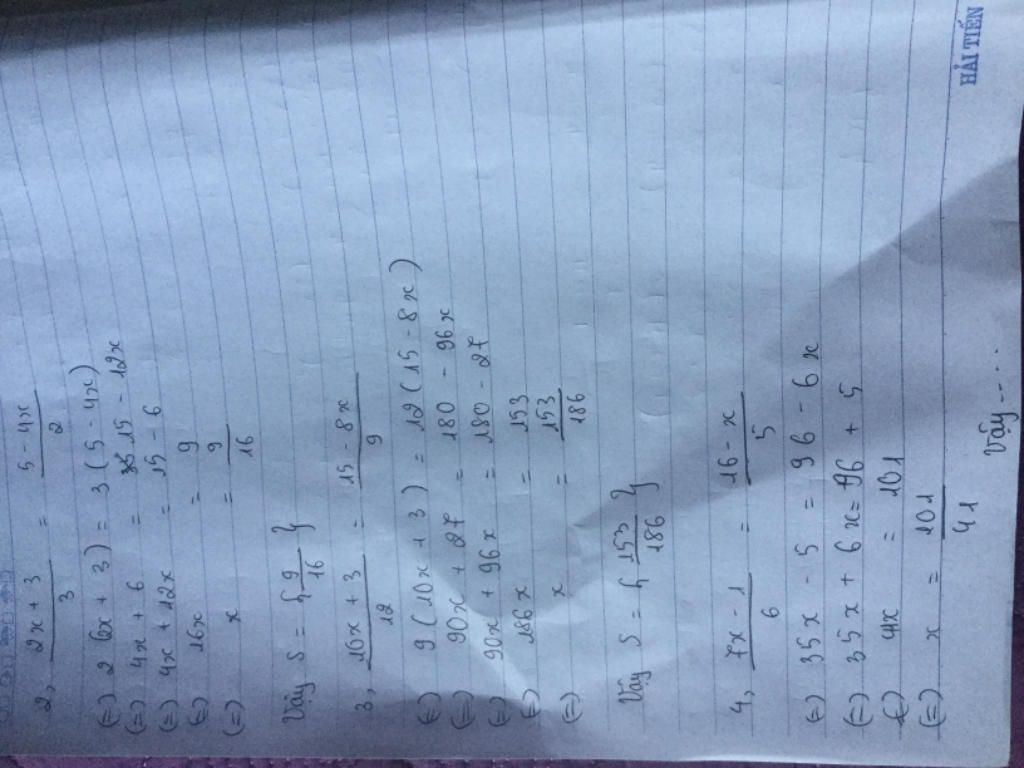 2, (2x + 3)/3 = (5 - 4x)/2
(=) 2 (2x + 3) = 3 (5 - 4x)
(=) 4x + 6 = 15 - 12x
(=) 4x + 12x = 15 - 6
(=) 16x = 9
(=) x = 9/16
Vậy S = { 9/16 }
3, (16x + 3)/12 = (15 - 8x)/9
(=) 9 (10x + 3) = 12 (15 - 8x)
(=) 90x + 27 = 180 - 96x
(=) 90x + 96x = 180 - 27
(=) 186x = 153
(=) x = 153/186
Vậy S = { 153/186 }
4, (7x - 1)/6 = (16 - x)/5
(=) 35x - 5 = 96 - 6x
(=) 35x + 6x = 96 + 5
(=) 41x = 101
(=) x = 101/41
Vậy ....
HẢI TIẾN